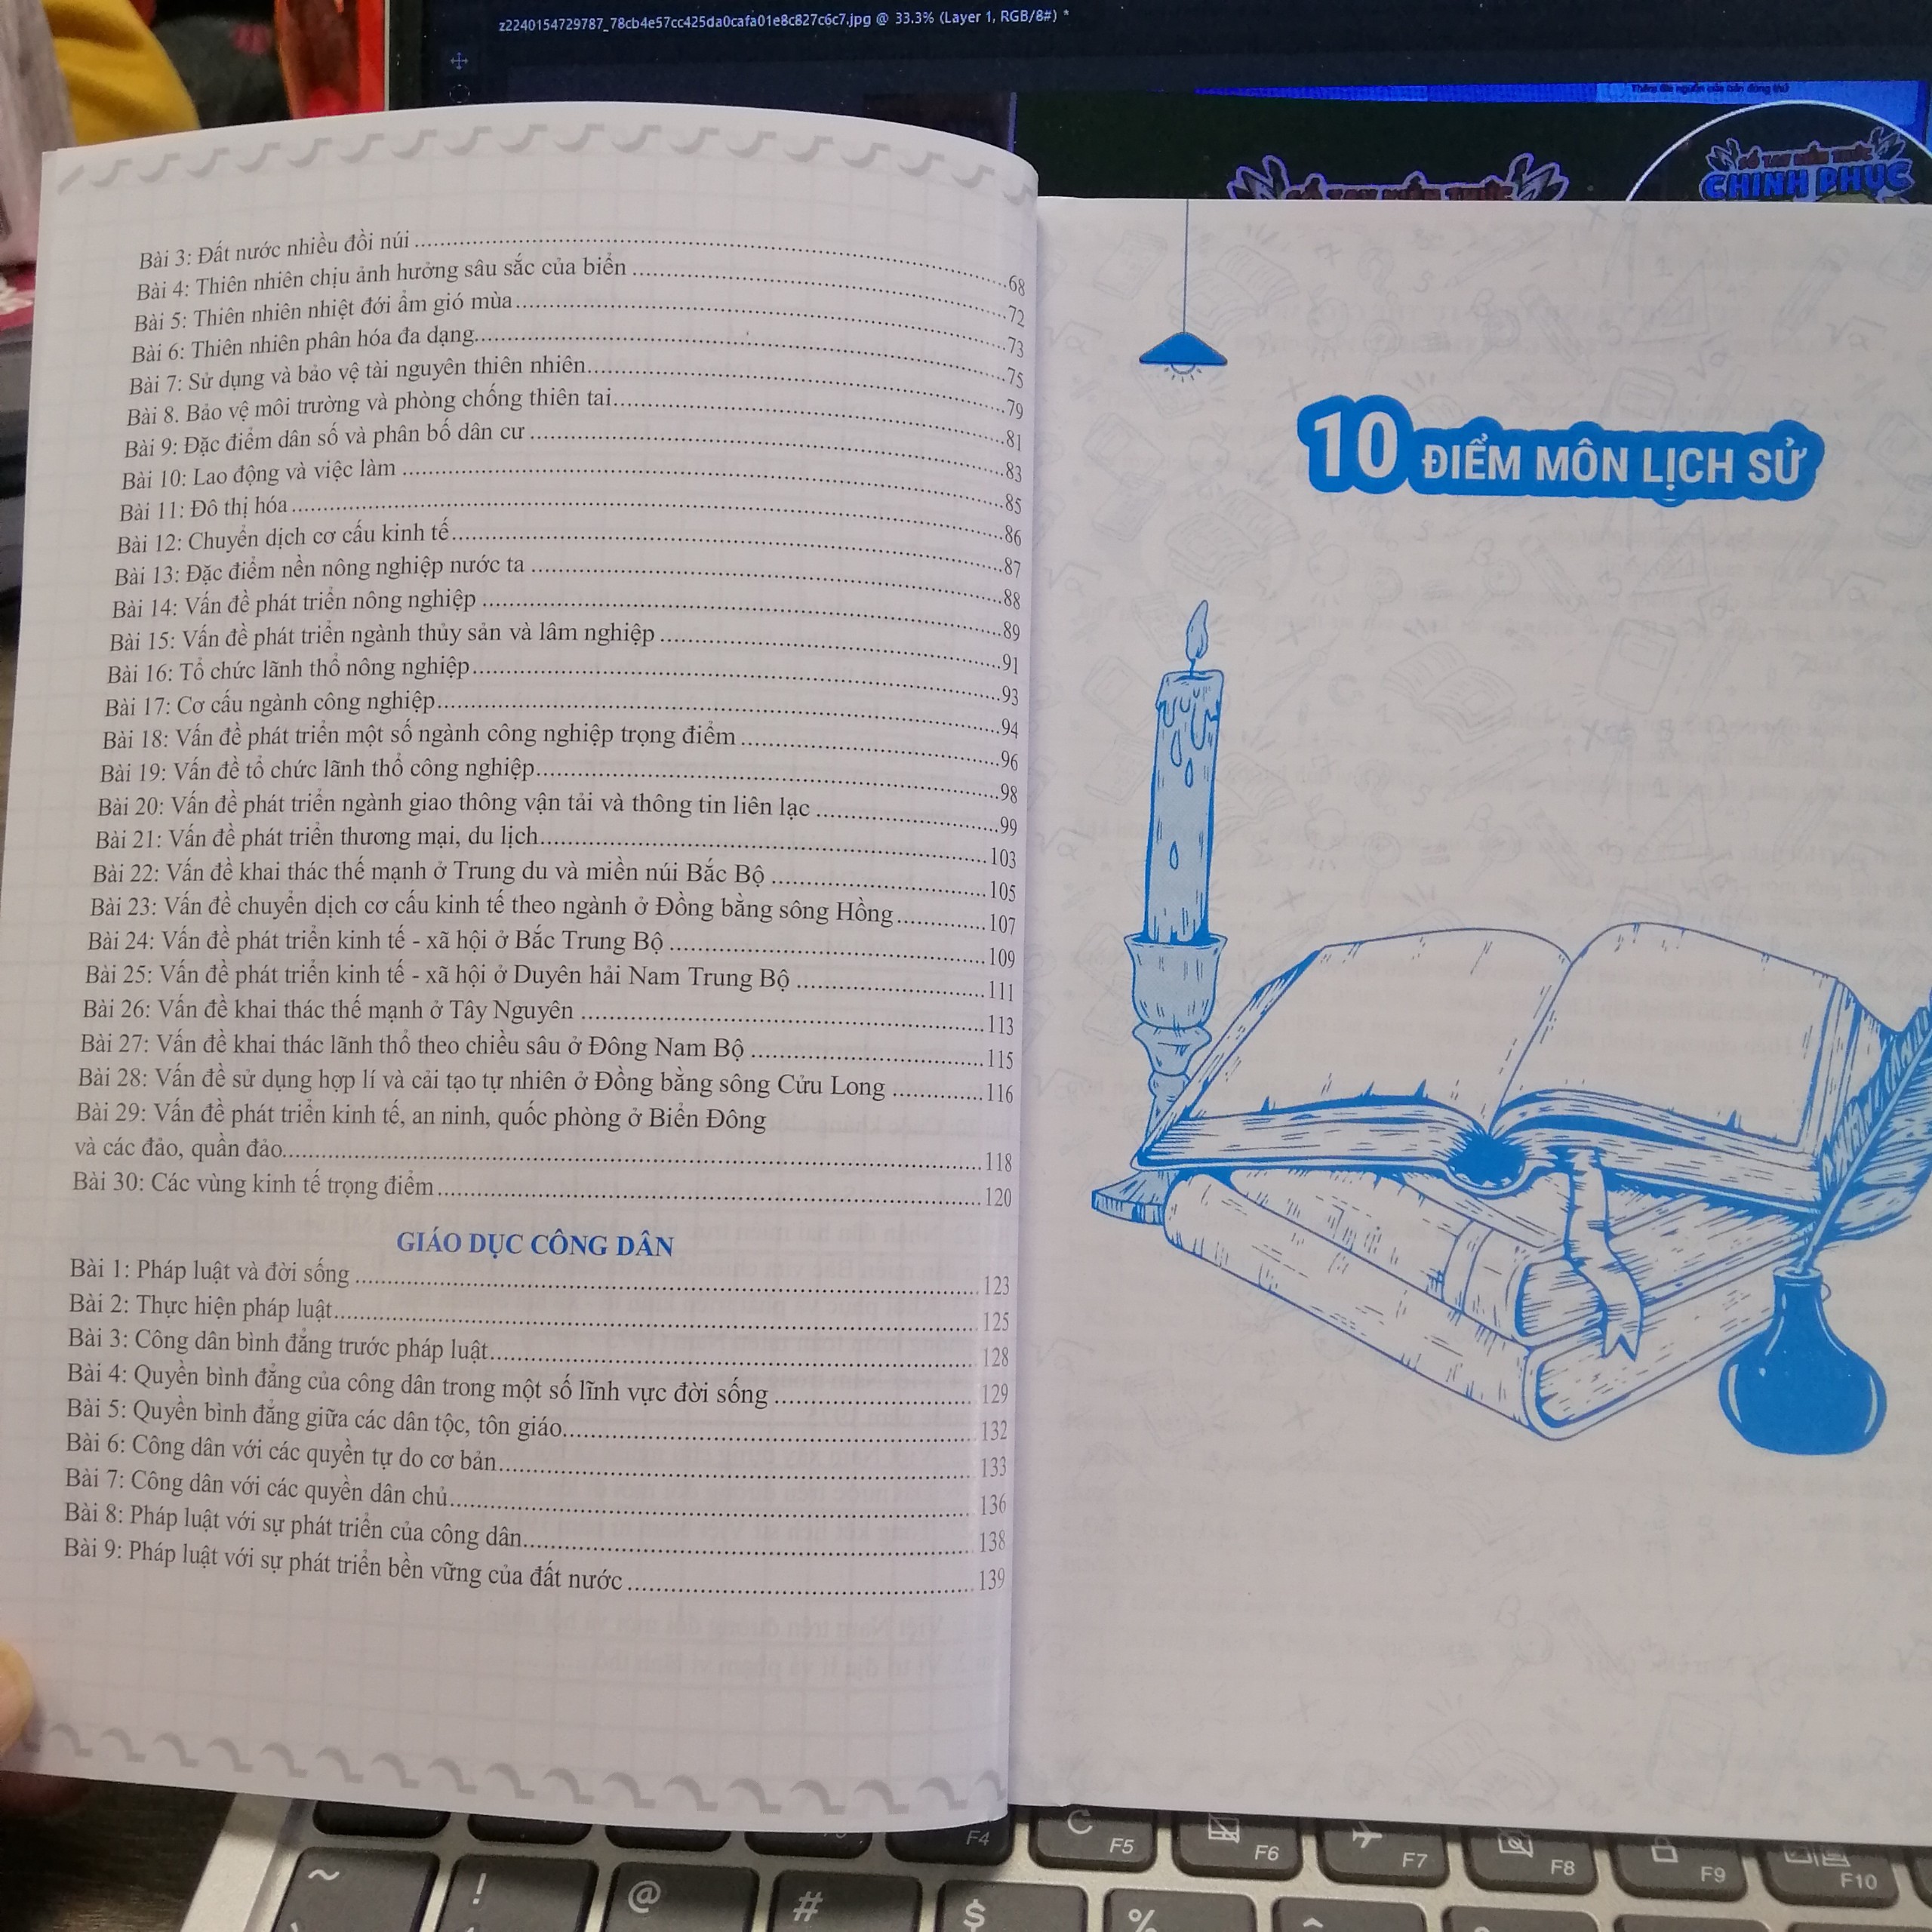 z2240154729787_78cb4e57cc425da0cafa01e8c827c6c7.jpg @ 33.3% (Layer 1, RGB/8#) *
SỔ TAY KIẾN THỨC
SỔ TAY KIẾN THỨC
CHINH PHỤC
Bài 3: Đất nước nhiều đồi núi ........ 68
Bài 4: Thiên nhiên chịu ảnh hưởng sâu sắc của biển ........ 72
Bài 5: Thiên nhiên nhiệt đới ẩm gió mùa ........ 73
Bài 6: Thiên nhiên phân hóa đa dạng ........ 75
Bài 7: Sử dụng và bảo vệ tài nguyên thiên nhiên ........ 79
Bài 8. Bảo vệ môi trường và phòng chống thiên tai ........ 81
Bài 9: Đặc điểm dân số và phân bố dân cư ........ 83
Bài 10: Lao động và việc làm ........ 85
Bài 11: Đô thị hóa ........ 86
Bài 12: Chuyển dịch cơ cấu kinh tế ........ 87
Bài 13: Đặc điểm nền nông nghiệp nước ta ........ 88
Bài 14: Vấn đề phát triển nông nghiệp ........ 89
Bài 15: Vấn đề phát triển ngành thủy sản và lâm nghiệp ........ 91
Bài 16: Tổ chức lãnh thổ nông nghiệp ........ 93
Bài 17: Cơ cấu ngành công nghiệp ........ 94
Bài 18: Vấn đề phát triển một số ngành công nghiệp trọng điểm ........ 96
Bài 19: Vấn đề tổ chức lãnh thổ công nghiệp ........ 98
Bài 20: Vấn đề phát triển ngành giao thông vận tải và thông tin liên lạc ........ 99
Bài 21: Vấn đề phát triển thương mại, du lịch ........ 103
Bài 22: Vấn đề khai thác thế mạnh ở Trung du và miền núi Bắc Bộ ........ 105
Bài 23: Vấn đề chuyển dịch cơ cấu kinh tế theo ngành ở Đồng bằng sông Hồng ........ 107
Bài 24: Vấn đề phát triển kinh tế - xã hội ở Bắc Trung Bộ ........ 109
Bài 25: Vấn đề phát triển kinh tế - xã hội ở Duyên hải Nam Trung Bộ ........ 111
Bài 26: Vấn đề khai thác thế mạnh ở Tây Nguyên ........ 113
Bài 27: Vấn đề khai thác lãnh thổ theo chiều sâu ở Đông Nam Bộ ........ 115
Bài 28: Vấn đề sử dụng hợp lí và cải tạo tự nhiên ở Đồng bằng sông Cửu Long ........ 116
Bài 29: Vấn đề phát triển kinh tế, an ninh, quốc phòng ở Biển Đông
và các đảo, quần đảo ........ 118
Bài 30: Các vùng kinh tế trọng điểm ........ 120
GIÁO DỤC CÔNG DÂN
Bài 1: Pháp luật và đời sống ........ 123
Bài 2: Thực hiện pháp luật ........ 125
Bài 3: Công dân bình đẳng trước pháp luật ........ 128
Bài 4: Quyền bình đẳng của công dân trong một số lĩnh vực đời sống ........ 129
Bài 5: Quyền bình đẳng giữa các dân tộc, tôn giáo ........ 132
Bài 6: Công dân với các quyền tự do cơ bản ........ 133
Bài 7: Công dân với các quyền dân chủ ........ 136
Bài 8: Pháp luật với sự phát triển của công dân ........ 138
Bài 9: Pháp luật với sự phát triển bền vững của đất nước ........ 139
10 ĐIỂM MÔN LỊCH SỬ
F4 F5 F6 F7 F8 F9 F10
~ ! @ # $ % ^